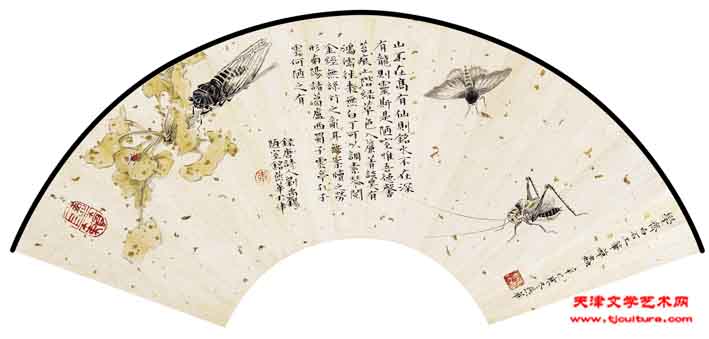 山不在高有仙則銘水不在深
有龍則靈斯是陋室惟吾德馨
苔痕上階綠草色入簾青談笑有
鴻儒往來無白丁可以調素琴閱
金經無絲竹之亂耳無案牘之勞
形南陽諸葛廬西蜀子雲亭孔子
雲何陋之有
錄唐詩人劉禹錫
陋室銘
學齊白石工筆草蟲
天津文学艺术网
www.tjculture.com